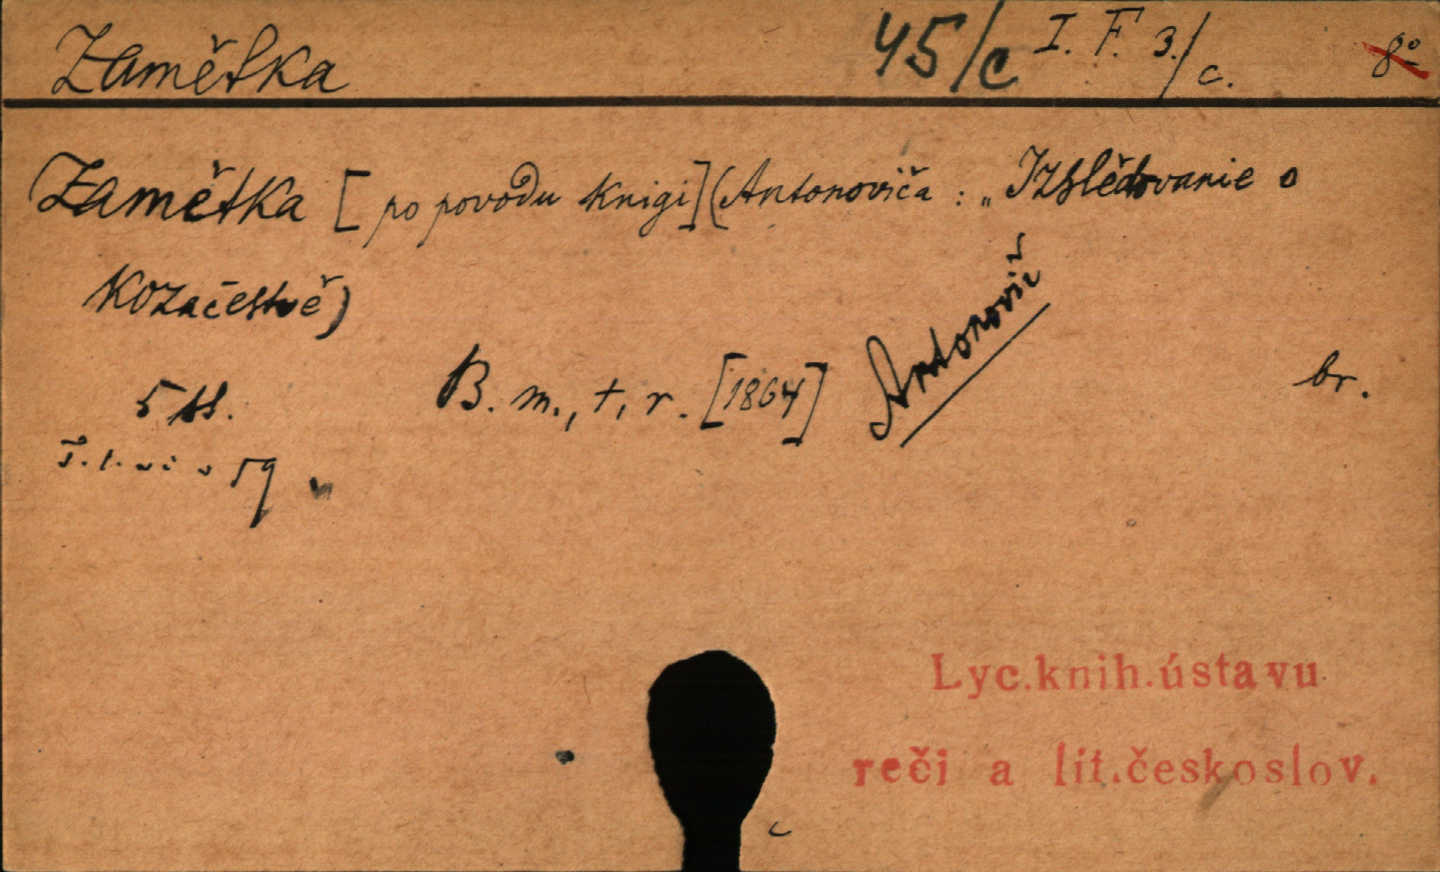 Zamětka 45/c I. F. 3./c. 8°
Zamětka [po povodu knigi] (Antonoviča : „Izslědovanie o
kozačestvě)
5 sl. B. m., t, r. [1864] Antonovič br.
59
Lyc. knih. ústavu
reči a lit. českoslov.